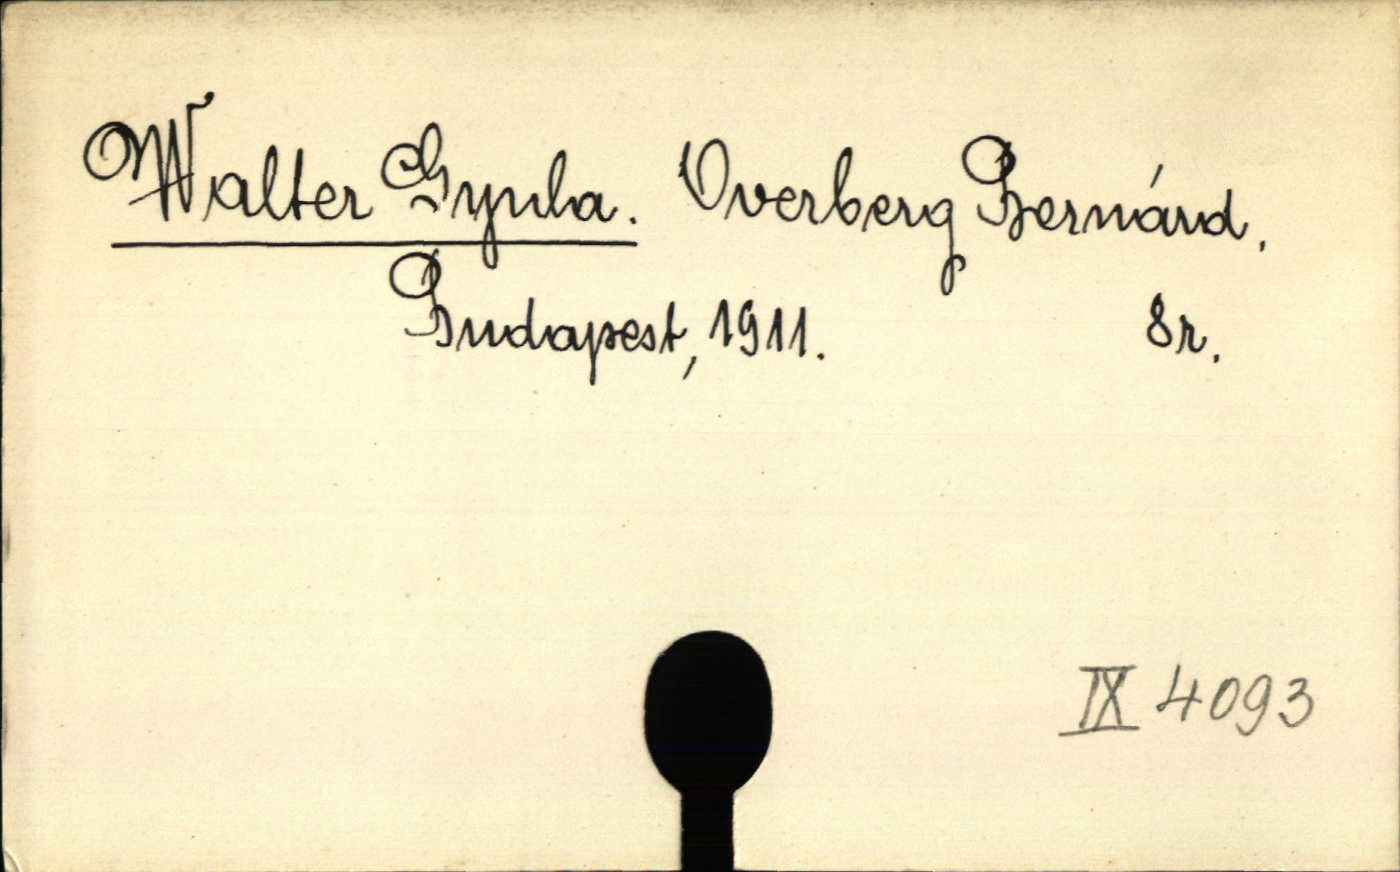 Walter Gyula. Overberg Bernárd.
Budapest, 1911. 8r.
IX 4093